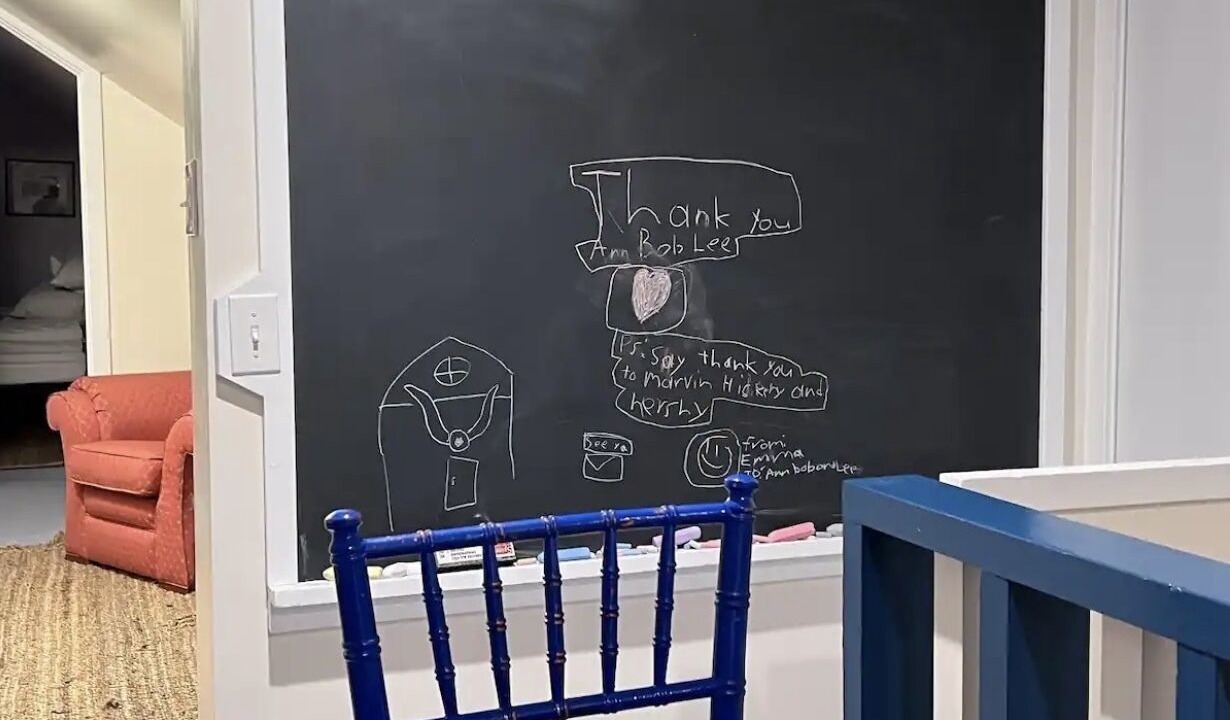 Thank you
Ann Bob Lee
Ps: Say thank you
to marvin Hickery and
hershy
See ya
from:
Emma
To: Ann bob and Lee